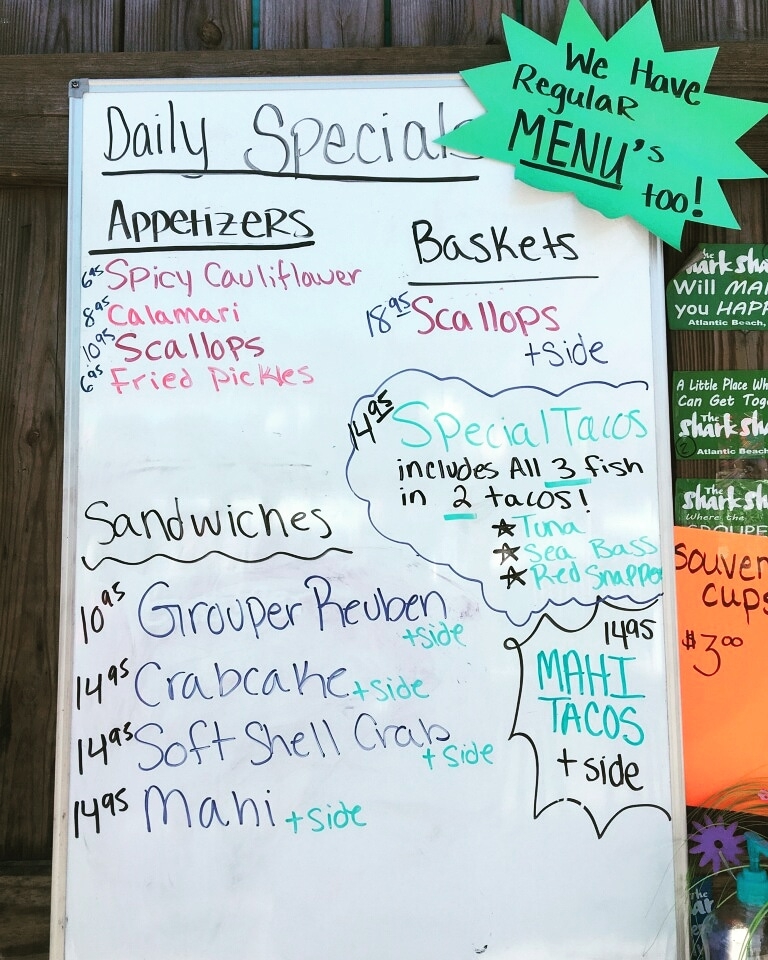 Daily Specials
We Have
Regular
MENU's
too!
Appetizers
6.95 Spicy Cauliflower
8.95 Calamari
10.95 Scallops
6.95 Fried Pickles
Baskets
18.95 Scallops
+side
14.95 Special Tacos
includes All 3 fish
in 2 tacos!
Tuna
Sea Bass
Red Snapper
Sandwiches
10.95 Grouper Reuben
+side
14.95 Crabcake +side
14.95 Soft Shell Crab
+side
14.95 Mahi +side
14.95
MAHI
TACOS
+side
The
Will
you
Atlantic Beach,
A Little Place
Can Get
The
Atlantic Beach
The
Where the
cups
$3.00